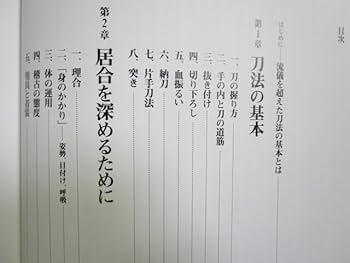 目次
はじめに――流儀を超えた刀法の基本とは
第1章 刀法の基本
一、刀の握り方
二、手の内と刀の道筋
三、抜き付け
四、切り下ろし
五、血振るい
六、納刀
七、片手刀法
八、突き
第2章 居合を深めるために
一、理合
二、「身のかかり」 姿勢、目付け、呼吸
三、体の運用
四、稽古の態度
五、